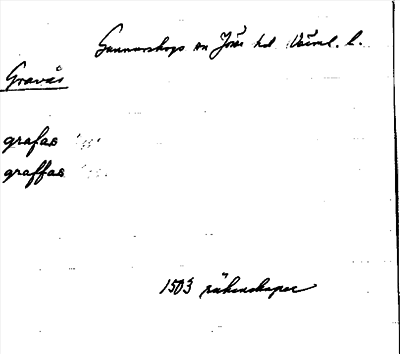 Gunnarskogs sn Jösse hd Värml. l.
Gravås
grafaas "
graffaas "
1503 räkenskaper